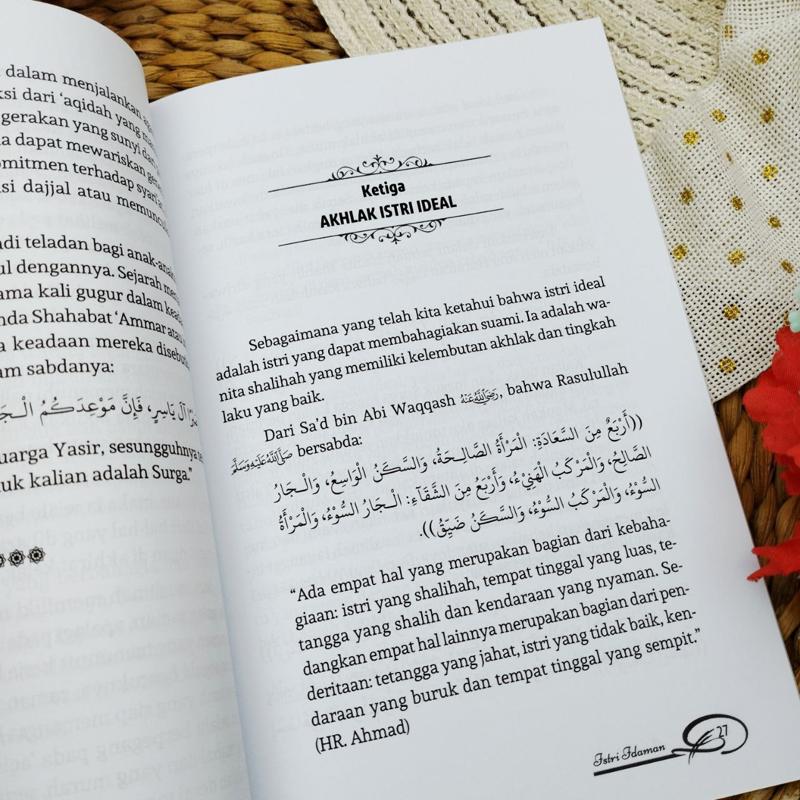 dalam menjalankan
dari ‘aqidah yang
gerakan yang sunyi
dapat mewariskan
terhadap syari’at
dajjal atau
teladan bagi anak-anak
dengannya. Sejarah
kali gugur dalam
Shahabat ‘Ammar atau
keadaan mereka
sabdanya:
آلَ يَاسِرٍ، فَإِنَّ مَوْعِدَكُمُ
Yasir, sesungguhnya
kalian adalah Surga.”
Ketiga
AKHLAK ISTRI IDEAL
Sebagaimana yang telah kita ketahui bahwa istri ideal
adalah istri yang dapat membahagiakan suami. Ia adalah wa-
nita shalihah yang memiliki kelembutan akhlak dan tingkah
laku yang baik.
Dari Sa’d bin Abi Waqqash رَضِيَ اللَّهُ عَنْهُ, bahwa Rasulullah
صَلَّى اللَّهُ عَلَيْهِ وَسَلَّمَ bersabda:
((أَرْبَعٌ مِنَ السَّعَادَةِ: الْمَرْأَةُ الصَّالِـحَةُ، وَالسَّكَنُ الْوَاسِعُ، وَالْـجَارُ
الصَّالِحُ، وَالْمَرْكَبُ الْهَنِيْءُ، وَأَرْبَعٌ مِنَ الشَّقَاءِ: الْـجَارُ السُّوْءُ، وَالْمَرْأَةُ
السُّوْءُ، وَالْمَرْكَبُ السُّوْءُ، وَالسَّكَنُ ضَيِّقُ)).
“Ada empat hal yang merupakan bagian dari kebaha-
giaan: istri yang shalihah, tempat tinggal yang luas, te-
tangga yang shalih dan kendaraan yang nyaman. Se-
dangkan empat hal lainnya merupakan bagian dari pen-
deritaan: tetangga yang jahat, istri yang tidak baik, ken-
daraan yang buruk dan tempat tinggal yang sempit.”
(HR. Ahmad)
Istri Idaman 27